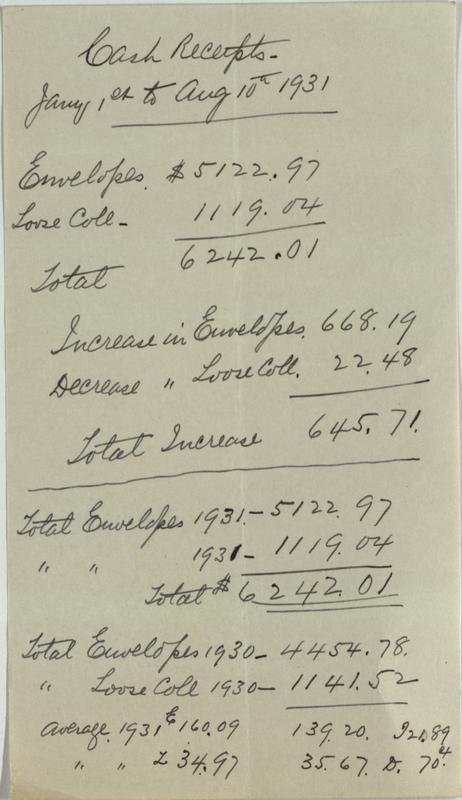 Cash Receipts-
Jany 1st to Aug 10th 1931
Envelopes. $5122.97
Loose Coll- 1119.04
Total 6242.01
Increase in Envelopes. 668.19
Decrease " Loose Coll. 22.48
Total Increase 645.71.
Total Envelopes 1931.- 5122.97
" " 1931- 1119.04
Total $ 6242.01
Total Envelopes 1930- 4454.78.
" Loose Coll 1930- 1141.52
Average. 1931 E 160.09 139.20. I 20.89
" " L 34.97 35.67. D. 70¢